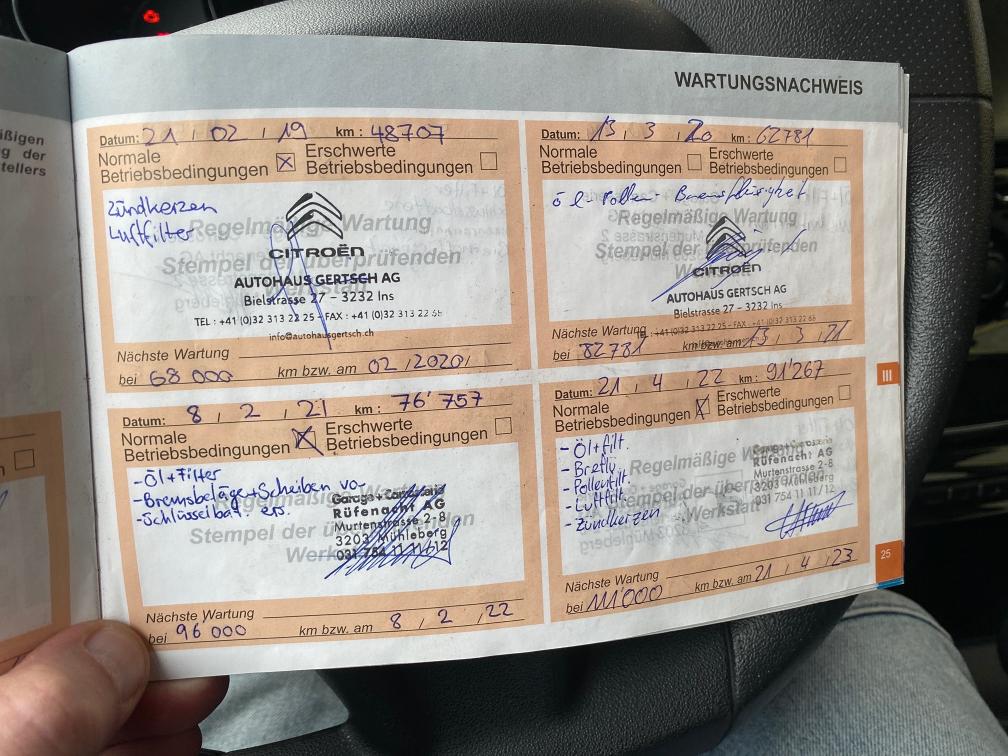 ißigen
g der
tellers
WARTUNGSNACHWEIS
Datum: 21 , 02 , 19 km : 48707
Normale Betriebsbedingungen
Erschwerte Betriebsbedingungen
Zündkerzen
Luftfilter
Regelmäßige Wartung
Stempel der überprüfenden
Werkstatt
CITROËN
AUTOHAUS GERTSCH AG
Bielstrasse 27 – 3232 Ins
TEL : +41 (0)32 313 22 25 – FAX : +41 (0)32 313 22 65
info@autohausgertsch.ch
Nächste Wartung
bei 68 000 km bzw. am 02 /2020/
Datum: 13 , 3 , 20 km : 62781
Normale Betriebsbedingungen
Erschwerte Betriebsbedingungen
Öl Pollen
Regelmäßige Wartung
Stempel der überprüfenden
CITROËN
AUTOHAUS GERTSCH AG
Bielstrasse 27 – 3232 Ins
TEL : +41 (0)32 313 22 25 – FAX : +41 (0)32 313 22 65
Nächste Wartung
bei 82781 km bzw. am 13 , 3 , 21
Datum: 8 , 2 , 21 km : 76'757
Normale Betriebsbedingungen
Erschwerte Betriebsbedingungen
- Öl + Filter
- Bremsbeläge + Scheiben vo.
- Schlüsselbat. ers.
Regelmäßige Wartung
Stempel der überprüfenden
Werkstatt
Garage + Carrosserie
Rüfenacht AG
Murtenstrasse 2-8
3203 Mühleberg
031 754 11 11/12
Nächste Wartung
bei 96 000 km bzw. am 8 , 2 , 22
Datum: 21 , 4 , 22 km : 91'267
Normale Betriebsbedingungen
Erschwerte Betriebsbedingungen
- Öl + filt.
- Brefl.
- Pollenfilt.
- Luftfilt.
- Zündkerzen
Regelmäßige Wartung
Stempel der überprüfenden
Werkstatt
Garage + Carrosserie
Rüfenacht AG
Murtenstrasse 2-8
3203 Mühleberg
031 754 11 11/12
Nächste Wartung
bei 111'000 km bzw. am 21 , 4 , 23
III
25